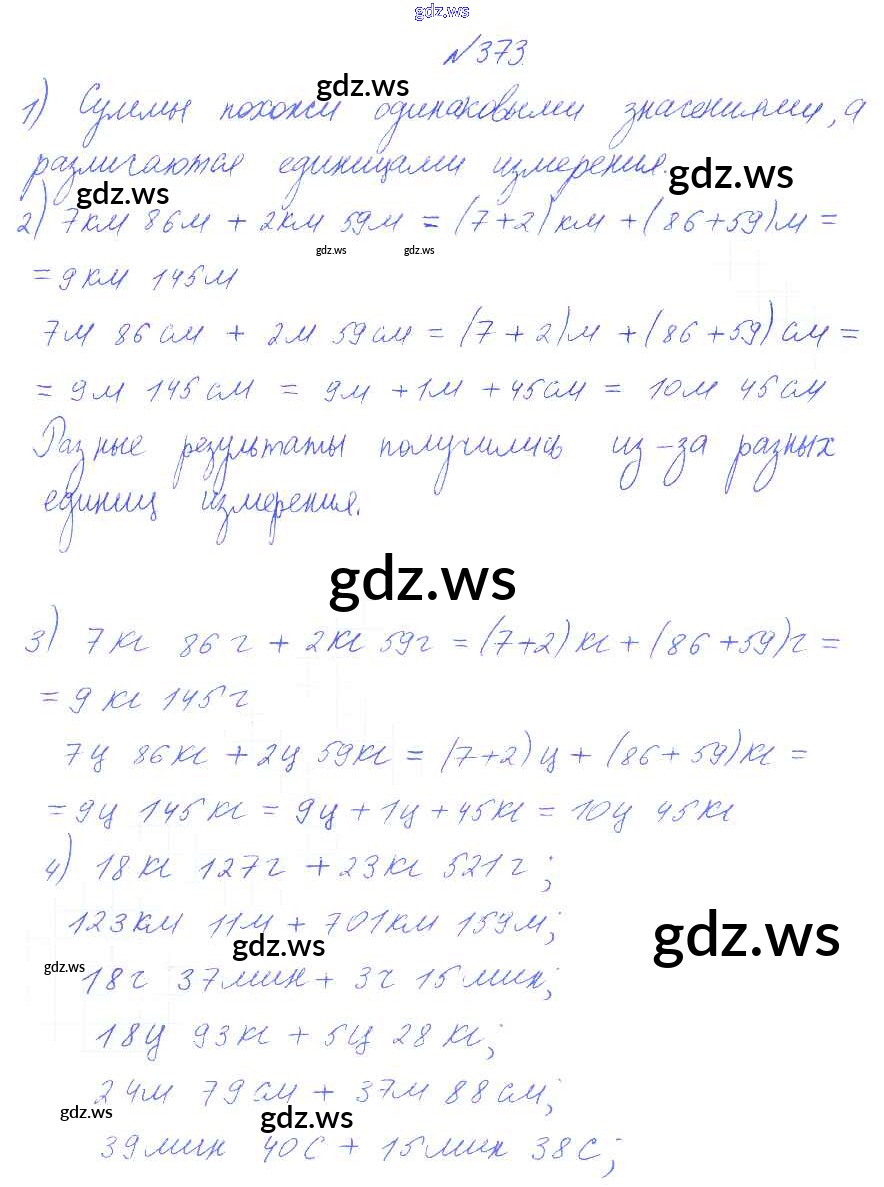 gdz.ws
№373.
gdz.ws
1) Суммы похожи одинаковыми значениями, а
различаются единицами измерения.
gdz.ws
gdz.ws
2) 7км 86м + 2км 59м = (7+2)км +(86+59)м =
gdz.ws gdz.ws
= 9км 145м
7м 86см + 2м 59см = (7+2)м +(86+59)см =
= 9м 145см = 9м +1м +45см = 10м 45см
Разные результаты получились из-за разных
единиц измерения.
gdz.ws
3) 7кг 86г + 2кг 59г = (7+2)кг+(86+59)г =
= 9кг 145г
7ц 86кг + 2ц 59кг = (7+2)ц + (86+59)кг =
= 9ц 145кг = 9ц + 1ц +45кг = 10ц 45кг
4) 18кг 127г +23кг 521г;
123км 11м + 701км 159м;
gdz.ws
gdz.ws
gdz.ws
18ч 37мин + 3ч 15мин;
18ц 93кг + 5ц 28кг;
24м 79см + 37м 88см;
gdz.ws
gdz.ws
39мин 40с + 15мин 38с;